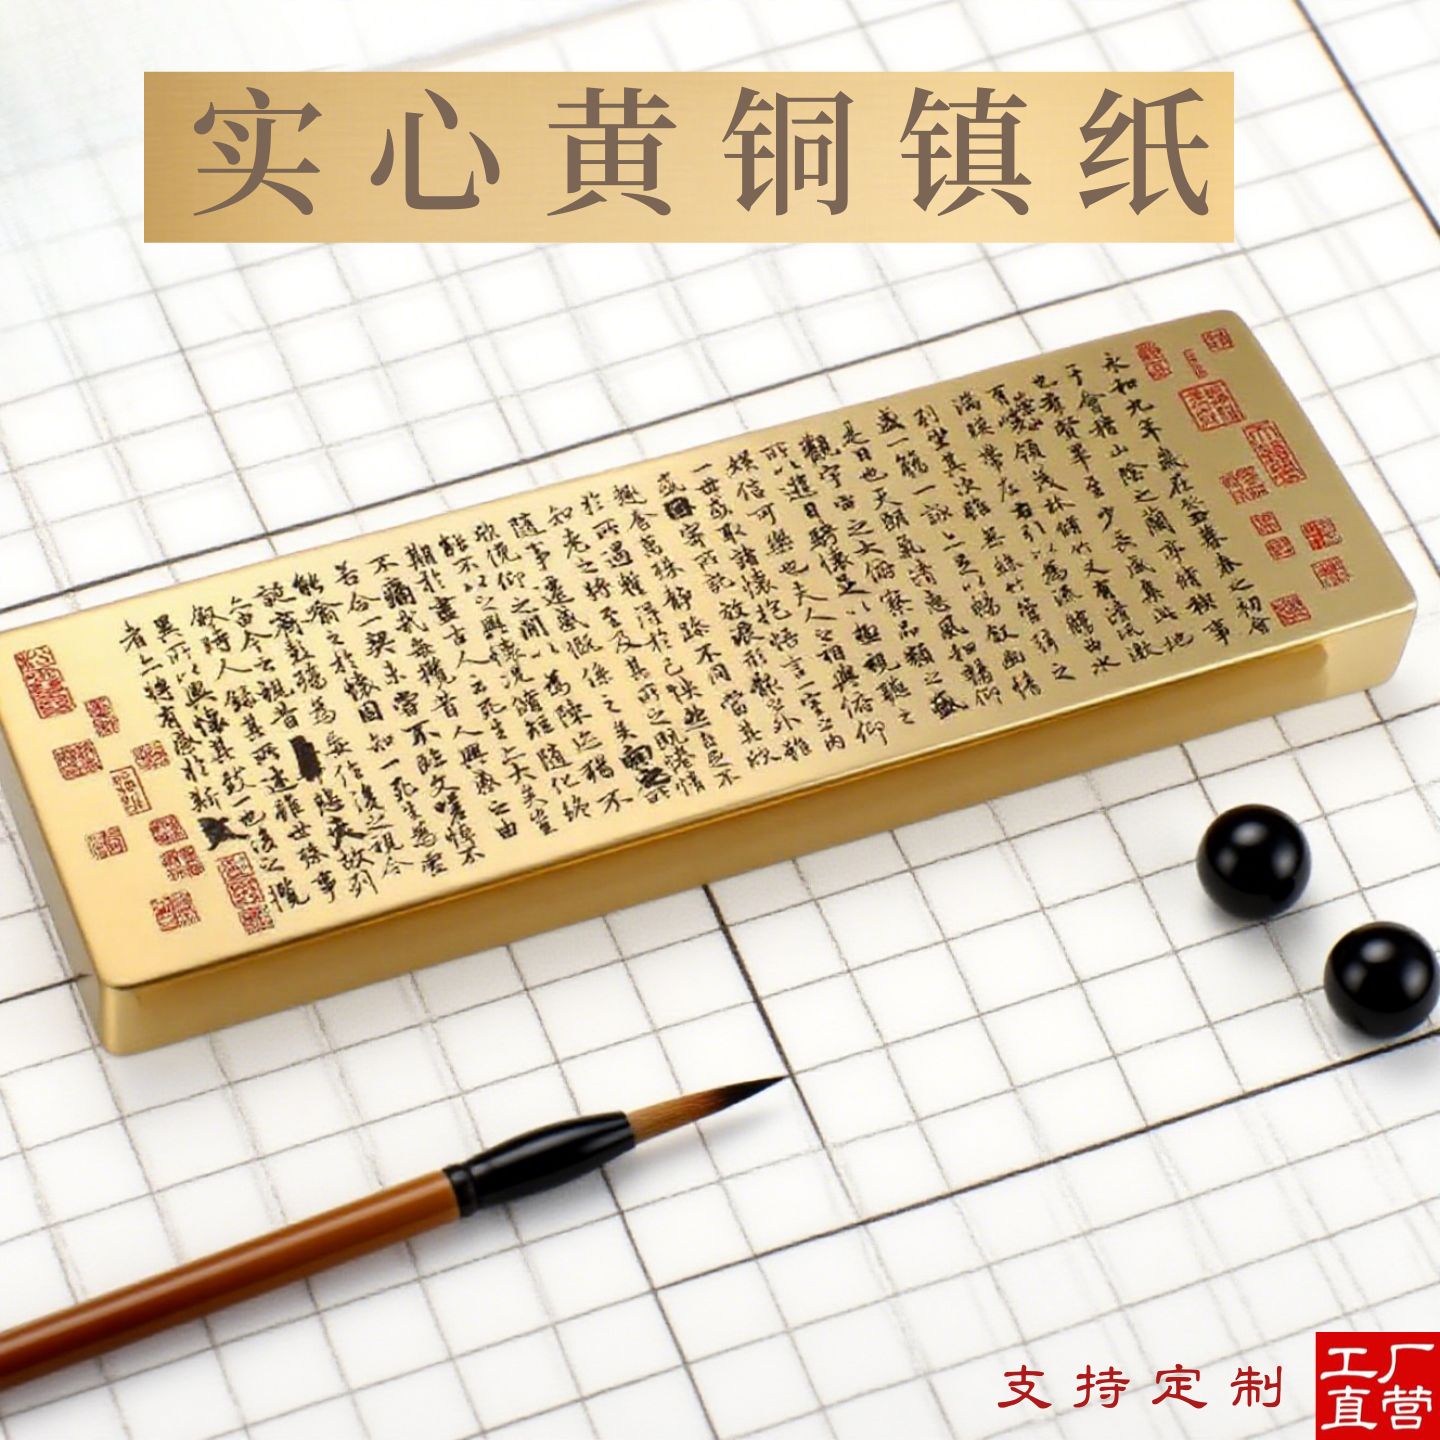 实心黄铜镇纸
永和九年歲在癸丑暮春之初會
于會稽山陰之蘭亭脩禊事
也羣賢畢至少長咸集此地
有崇山峻領茂林脩竹又有清流激
湍暎帶左右引以為流觴曲水
列坐其次雖無絲竹管弦之
盛一觴一詠亦足以暢敘幽情
是日也天朗氣清惠風和暢仰
觀宇宙之大俯察品類之盛
所以遊目騁懷足以極視聽之
娛信可樂也夫人之相與俯仰
一世或取諸懷抱悟言一室之內
或因寄所託放浪形骸之外雖
趣舍萬殊靜躁不同當其欣
於所遇暫得於己怏然自足不
知老之將至及其所之既惓情
隨事遷感慨係之矣向之所
欣俛仰之間以為陳迹猶不
能不以之興懷況脩短隨化終
期於盡古人云死生亦大矣豈
不痛哉每攬昔人興感之由
若合一契未嘗不臨文嗟悼不
能喻之於懷固知一死生為虛
誕齊彭殤為妄作後之視今
亦由今之視昔悲夫故列
敘時人錄其所述雖世殊事
異所以興懷其致一也後之攬
者亦將有感於斯文
支持定制
工厂
直营